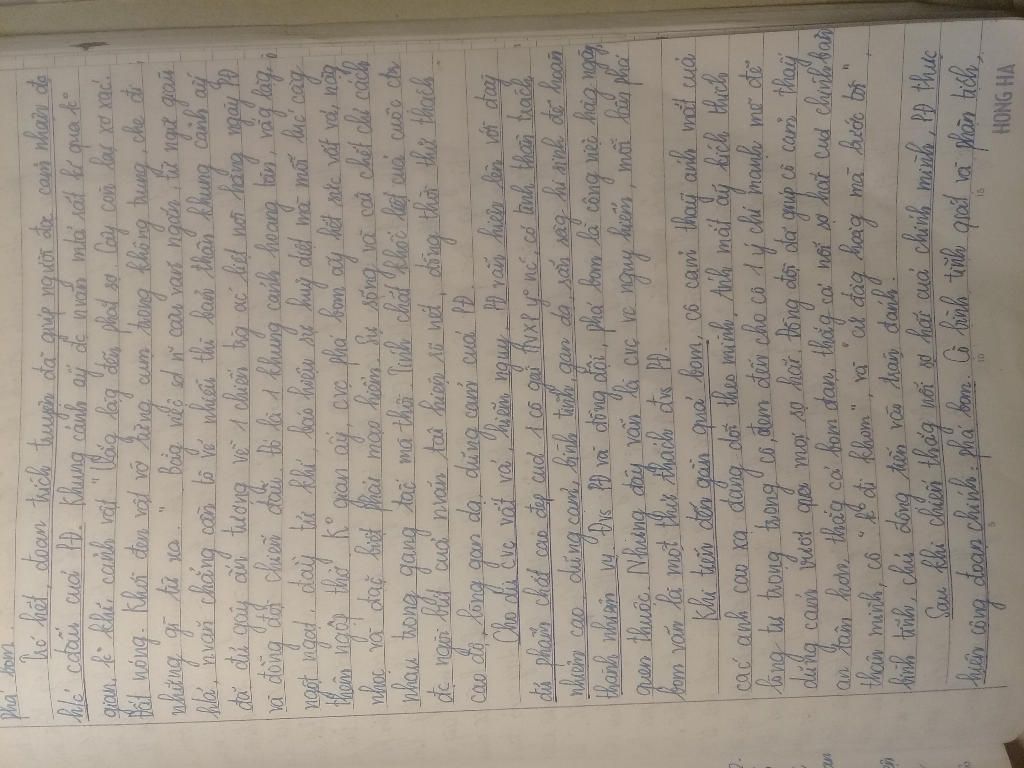 phá bom
Lúc hết, đoạn trích truyện đã giúp người đọc cảm nhận đc
khí của PĐ. Khung cảnh ấy đc nvăn mtả sắt kí qua k°
gian, k° khí, cảnh vật, " Vắng lặng đến phát sợ. Cây còn lại xơ xác.
Đất nóng. Khói đen vật vờ từng cụm trong không trung, che đi
những gì từ xa. " Bằng việc sd n` câu văn ngắn, từ ngữ giàu
nvăn chẳng cần tô vẽ nhiều thì bản thân khung cảnh ấy
đã đủ gây ấn tượng về 1 chiến trg ác liệt mà hằng ngày PĐ
và đồng đội chiến đấu. Đó là 1 khung cảnh hoang tàn, vắng lặng,
ngột ngạt, đầy tử khí, báo hiệu sự huỷ diệt mà mỗi lúc càng
thêm nghẹt thở. K° gian ấy, cviệc phá bom ấy hết sức vất vả nặng
nhọc và đặc biệt phải mạo hiểm. Sự sống và cái chết chỉ cách
nhau trong gang tấc mà thôi. Tính chất khốc liệt của cuộc ctr
đc ngòi bút của nvăn tái hiện rõ nét, đồng thời thử thách
cao độ, lòng gan dạ, dũng cảm của PĐ.
Cho dù cviệc vất vả, hiểm nguy, PĐ vẫn hiện lên với đầy
đủ phẩm chất cao đẹp của 1 cô gái TNXP y nc, có tinh thần trách
nhiệm cao, dũng cảm, bình tĩnh, gan dạ, sẵn sàng hi sinh để hoàn
thành nhiệm vụ. Đvs PĐ và đồng đội, phá bom là công việc hàng ngày,
quen thuộc. Nhưng đây vẫn là cviệc vc nguy hiểm, mỗi lần phá
bom vẫn là một thử thách đvs PĐ.
Khi tiến đến gần quả bom, cô cảm thấy ánh mắt của
các anh cao xạ đang dõi theo mình. Ánh mắt ấy kích thích
lòng tự trọng trong cô, đem đến cho cô 1 ý chí mạnh mẽ để
dũng cảm vượt qua mọi sợ hãi, đồng đội đã giúp cô cảm thấy
an tâm hơn, thắng cả bom đạn, thắng cả nỗi sợ hãi của chính bản
thân mình, cô " k° đi khom ", và " cứ đàng hoàng mà bước tới "
bình tĩnh, chủ động tiến vào trận đánh.
Sau khi chiến thắng nỗi sợ hãi của chính mình, PĐ thực
hiện công đoạn chính: phá bom. Cô bình tĩnh qsát và phân tích,
HONG HA